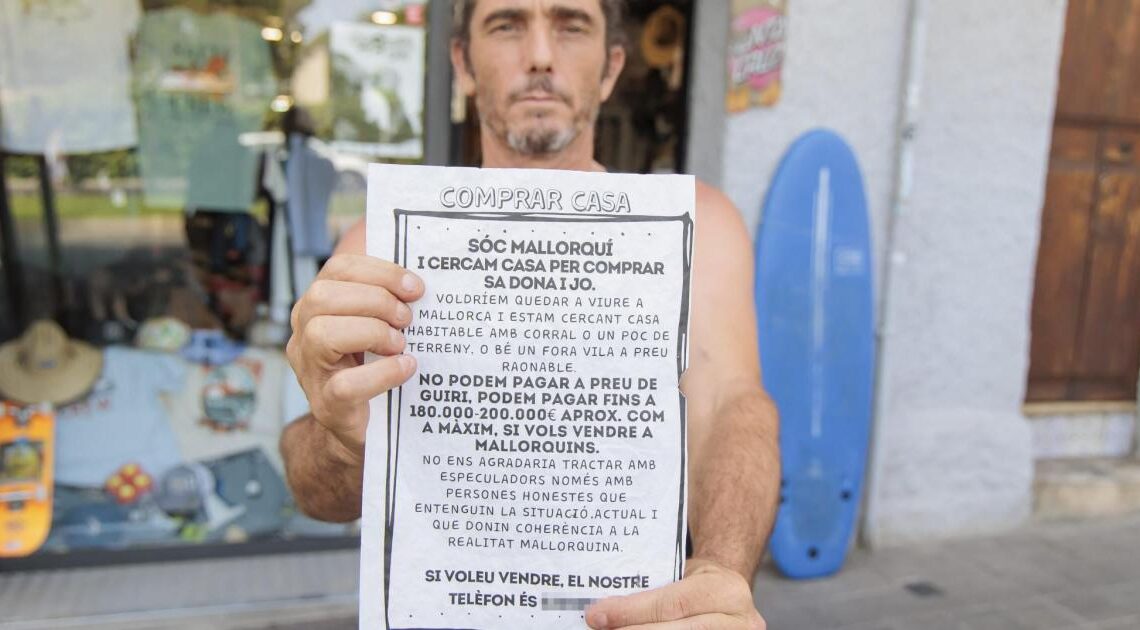 COMPRAR CASA
SÓC MALLORQUÍ
I CERCAM CASA PER COMPRAR
SA DONA I JO.
VOLDRÍEM QUEDAR A VIURE A
MALLORCA I ESTAM CERCANT CASA
HABITABLE AMB CORRAL O UN POC DE
TERRENY. O BÉ UN FORA VILA A PREU
RAONABLE.
NO PODEM PAGAR A PREU DE
GUIRI, PODEM PAGAR FINS A
180.000-200.000€ APROX. COM
A MÀXIM, SI VOLS VENDRE A
MALLORQUINS.
NO ENS AGRADARIA TRACTAR AMB
ESPECULADORS NOMÉS AMB
PERSONES HONESTES QUE
ENTENGUIN LA SITUACIÓ.ACTUAL I
QUE DONIN COHERÈNCIA A LA
REALITAT MALLORQUINA.
SI VOLEU VENDRE, EL NOSTRE
TELÈFON ÉS